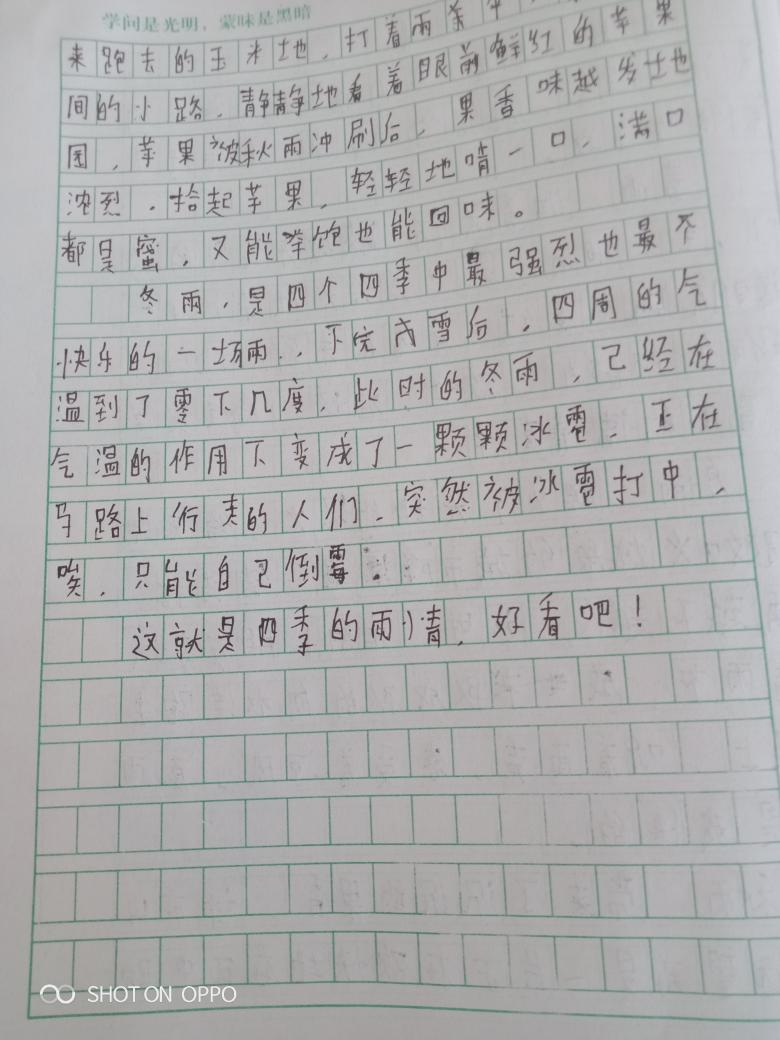 学问是光明，蒙昧是黑暗
来跑去的玉米地，打着雨伞
间的小路，静静地看着眼前鲜红的苹果
园，苹果被秋雨冲刷后，果香味越发地
浓烈，拾起苹果，轻轻地啃一口，满口
都是蜜，又能笨饱也能回味。
冬雨，是四个四季中最强烈也最不
快乐的一场雨，，下完大雪后，四周的气
温到了零下几度，此时的冬雨，已经在
气温的作用下变成了一颗颗冰雹，正在
马路上行走的人们，突然被冰雹打中，
唉，只能自己倒霉：
这就是四季的雨情，好看吧！
SHOT ON OPPO